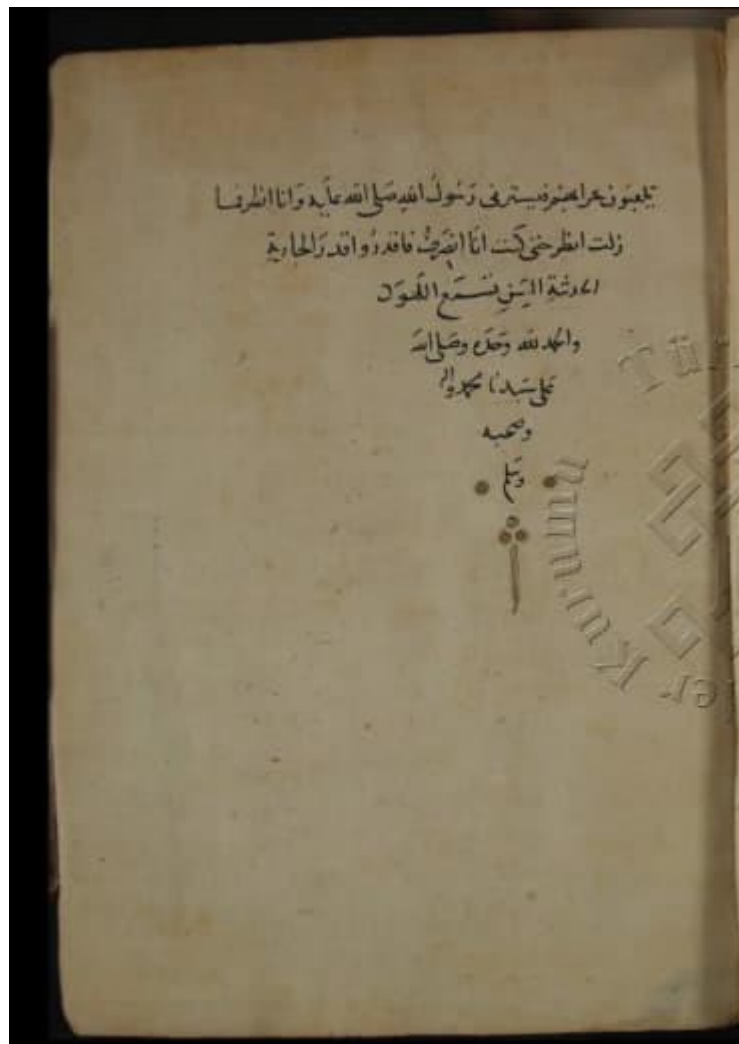 يلعبون بحرابهم فيسترني رسول الله صلى الله عليه وانا انظر فما
زلت انظر حتى كنت انا انصرف فاقدروا قدر الجارية
الحديثة السن تسمع اللهو
والحمد لله وحده وصلى الله
على سيدنا محمد واله
وصحبه
وسلم